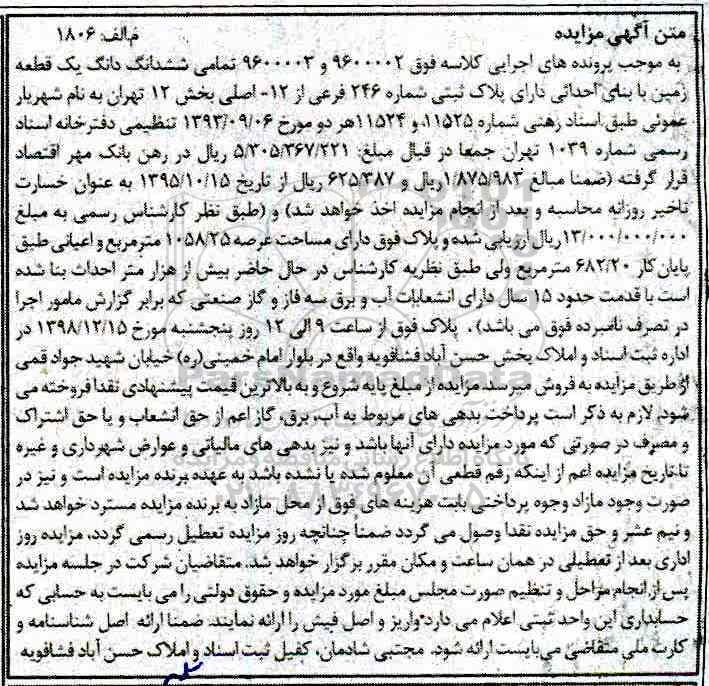 متن آگهی مزایده
م.الف: ۱۸۰۶
به موجب پرونده های اجرایی کلاسه فوق ۹۶۰۰۰۰۲ و ۹۶۰۰۰۰۳ تمامی ششدانگ دانگ یک قطعه
زمین با بنای احداثی دارای پلاک ثبتی شماره ۲۴۶ فرعی از ۱۲- اصلی بخش ۱۲ تهران به نام شهریار
عموئی طبق اسناد رهنی شماره ۱۱۵۲۵، و ۱۱۵۲۴هر دو مورخ ۱۳۹۳/۰۹/۰۶ تنظیمی دفترخانه اسناد
رسمی شماره ۱۰۳۹ تهران جمعا در قبال مبلغ: ۵/۳۰۵/۳۶۷/۲۲۱ ریال در رهن بانک مهر اقتصاد
قرار گرفته (ضمنا مبالغ ۱/۸۷۵/۹۸۳ریال و ۶۲۵/۳۸۷ ریال از تاریخ ۱۳۹۵/۱۰/۱۵ به عنوان خسارت
تاخیر روزانه محاسبه و بعد از انجام مزایده اخذ خواهد شد) و (طبق نظر کارشناس رسمی به مبلغ
۱۳/۰۰۰/۰۰۰/۰۰۰ریال ارزیابی شده و پلاک فوق دارای مساحت عرصه ۱۰۵۸/۲۵ مترمربع و اعیانی طبق
پایان کار ۶۸۲/۲۰ مترمربع ولی طبق نظریه کارشناس در حال حاضر بیش از هزار متر احداث بنا شده
است با قدمت حدود ۱۵ سال دارای انشعابات آب و برق سه فاز و گاز صنعتی که برابر گزارش مامور اجرا
در تصرف نامبرده فوق می باشد) . پلاک فوق از ساعت ۹ الی ۱۲ روز پنجشنبه مورخ ۱۳۹۸/۱۲/۱۵ در
اداره ثبت اسناد و املاک بخش حسن آباد فشافویه واقع در بلوار امام خمینی(ره) خیابان شهید جواد قمی
از طریق مزایده به فروش میرسد. مزایده از مبلغ پایه شروع و به بالاترین قیمت پیشنهادی نقدا فروخته می
شود. لازم به ذکر است پرداخت بدهی های مربوط به آب، برق، گاز اعم از حق انشعاب و یا حق اشتراک
و مصرف در صورتی که مورد مزایده دارای آنها باشد و نیز بدهی های مالیاتی و عوارض شهرداری و غیره
تا تاریخ مزایده اعم از اینکه رقم قطعی آن معلوم شده یا نشده باشد به عهده برنده مزایده است و نیز در
صورت وجود مازاد وجوه پرداختی بابت هزینه های فوق از محل مازاد به برنده مزایده مسترد خواهد شد
و نیم عشر و حق مزایده نقدا وصول می گردد ضمنا چنانچه روز مزایده تعطیل رسمی گردد، مزایده روز
اداری بعد از تعطیلی در همان ساعت و مکان مقرر برگزار خواهد شد. متقاضیان شرکت در جلسه مزایده
پس از انجام مراحل و تنظیم صورت مجلس مبلغ مورد مزایده و حقوق دولتی را می بایست به حسابی که
حسابداری این واحد ثبتی اعلام می دارد واریز و اصل فیش را ارائه نمایند. ضمنا ارائه اصل شناسنامه و
کارت ملی متقاضی می‌بایست ارائه شود. مجتبی شادمان، کفیل ثبت اسناد و املاک حسن آباد فشافویه